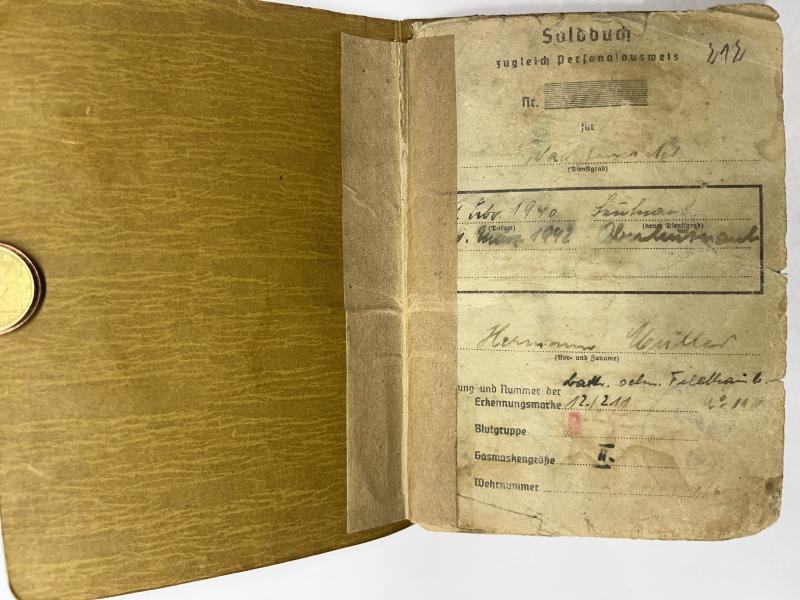 Soldbuch
zugleich Personalausweis
212
Nr.
für
(Dienstgrad)
1940 Leutnant
(Datum) (neuer Dienstgrad)
1. März 1942 Oberleutnant
Hermann Müller
(Vor- und Zuname)
ung und Nummer der
Erkennungsmarke 12./211
Blutgruppe
Gasmaskengröße II.
Wehrnummer